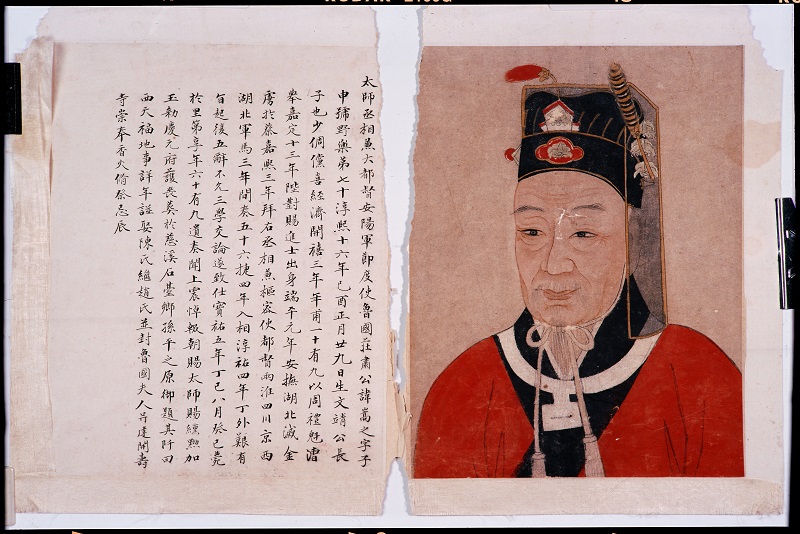 太師丞相兼大都督安陽軍節度使魯國莊肅公諱嵩之字子
申號野樂第七十淳熙十六年己酉正月廿九日生文靖公長
子也少倜儻喜經濟開禧三年年甫一十有九以周禮魁漕
舉嘉定十三年陛對賜進士出身端平元年安撫湖北滅金
虜於蔡嘉熙三年拜右丞相兼樞密使都督兩淮四川京西
湖北軍馬三年間奏五十六捷四年入相淳祐四年丁外艱有
旨起復五辭不允三學交論遂致仕寶祐五年丁巳八月癸巳薨
於里第享年六十有九遺奏聞上震悼輟朝賜太師賜纁黝加
玉勅慶元府護喪葬於慈溪石臺鄉孫平之原御題其阡曰
西天福地事詳年誌娶陳氏繼趙氏並封魯國夫人昇建開壽
寺崇奉香火脩祭忌辰